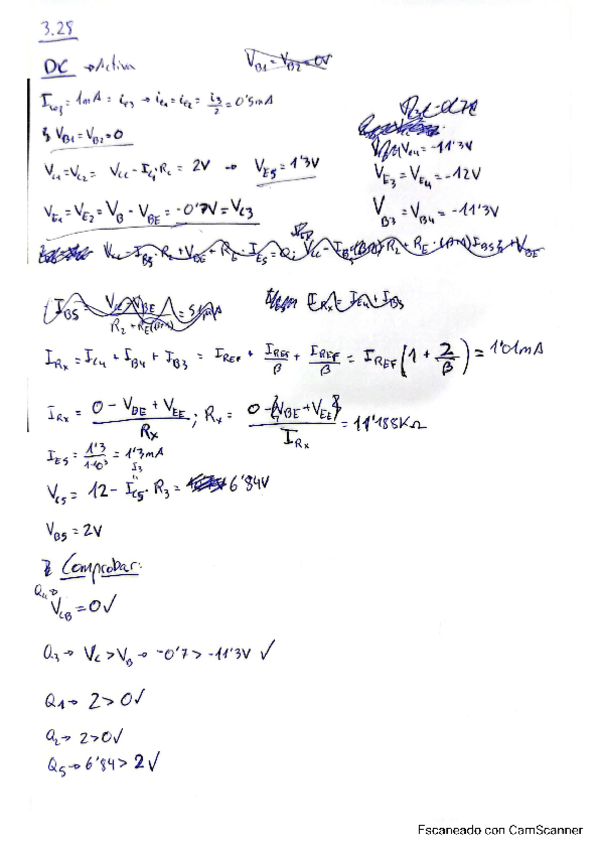 3.28
DC → Activa
V_B1 = V_B2 = 0V
I_REF = 1mA = i_C3 → i_C1 = i_C2 = i_3/2 = 0'5mA
y V_B1 = V_B2 = 0
V_C4 = -11'3V
V_C1 = V_C2 = V_CC - I_C1·R_C = 2V → V_E5 = 1'3V
V_E3 = V_E4 = -12V
V_E1 = V_E2 = V_B - V_BE = -0'7V = V_C3
V_B3 = V_B4 = -11'3V
I_Rx = I_C4 + I_B4 + I_B3 = I_REF + I_REF/β + I_REF/β = I_REF (1 + 2/β) = 1'01mA
I_Rx = (0 - V_BE + V_EE)/R_x ; R_x = (0 - {V_BE + V_EE})/I_Rx = 11'188KΩ
I_E5 = 1'3/1·10³ = 1'3mA
V_C5 = 12 - I_C5·R_3 = 6'84V
V_B5 = 2V
Comprobar:
Q4→
V_CB = 0 ✓
Q3→ V_C > V_B → -0'7 > -11'3V ✓
Q1→ 2 > 0 ✓
Q2→ 2 > 0 ✓
Q5→ 6'84 > 2 ✓
Escaneado con CamScanner